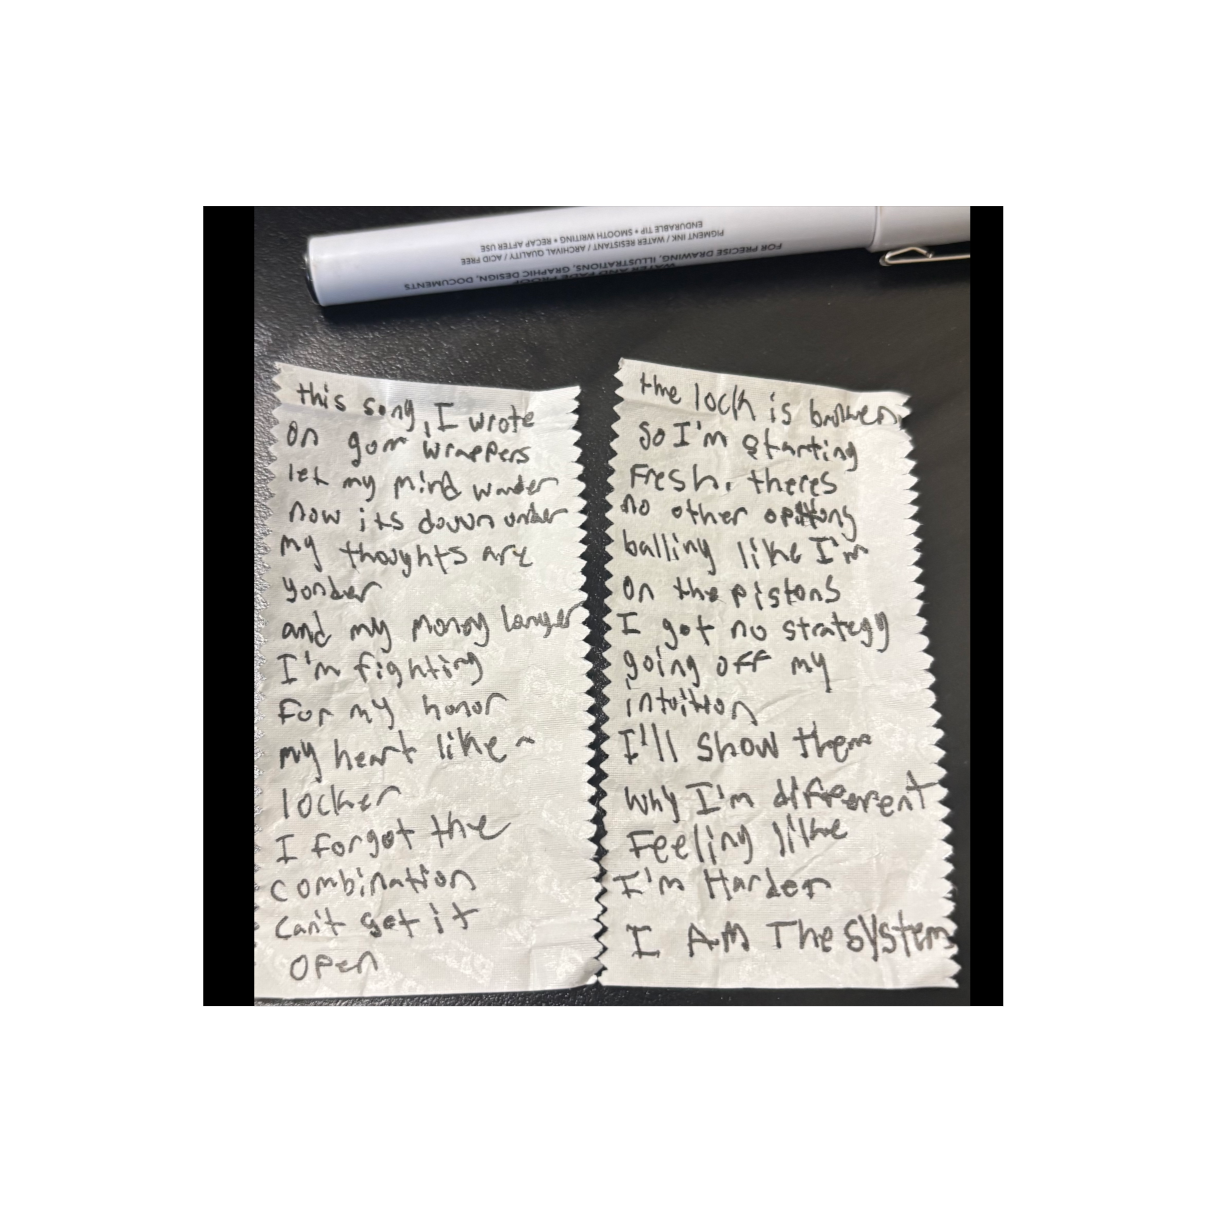 ENDURABLE TIP • SMOOTH WRITING • RECAP AFTER USE
PIGMENT INK / WATER RESISTANT / ARCHIVAL QUALITY / ACID FREE
FOR PRECISE DRAWING, ILLUSTRATIONS, GRAPHIC DESIGN, DOCUMENTS
WATER AND FADE PROOF
this song, I wrote
on gum wrappers
let my mind wander
now its down under
my thoughts are
yonder
and my money longer
I'm fighting
For my honor
my heart like a
locker
I forgot the
combination
can't get it
open
the lock is broken
so I'm starting
Fresh. theres
no other options
balling like I'm
on the pistons
I got no strategy
going off my
intuition
I'll show them
why I'm different
Feeling like
I'm Harden
I AM The system